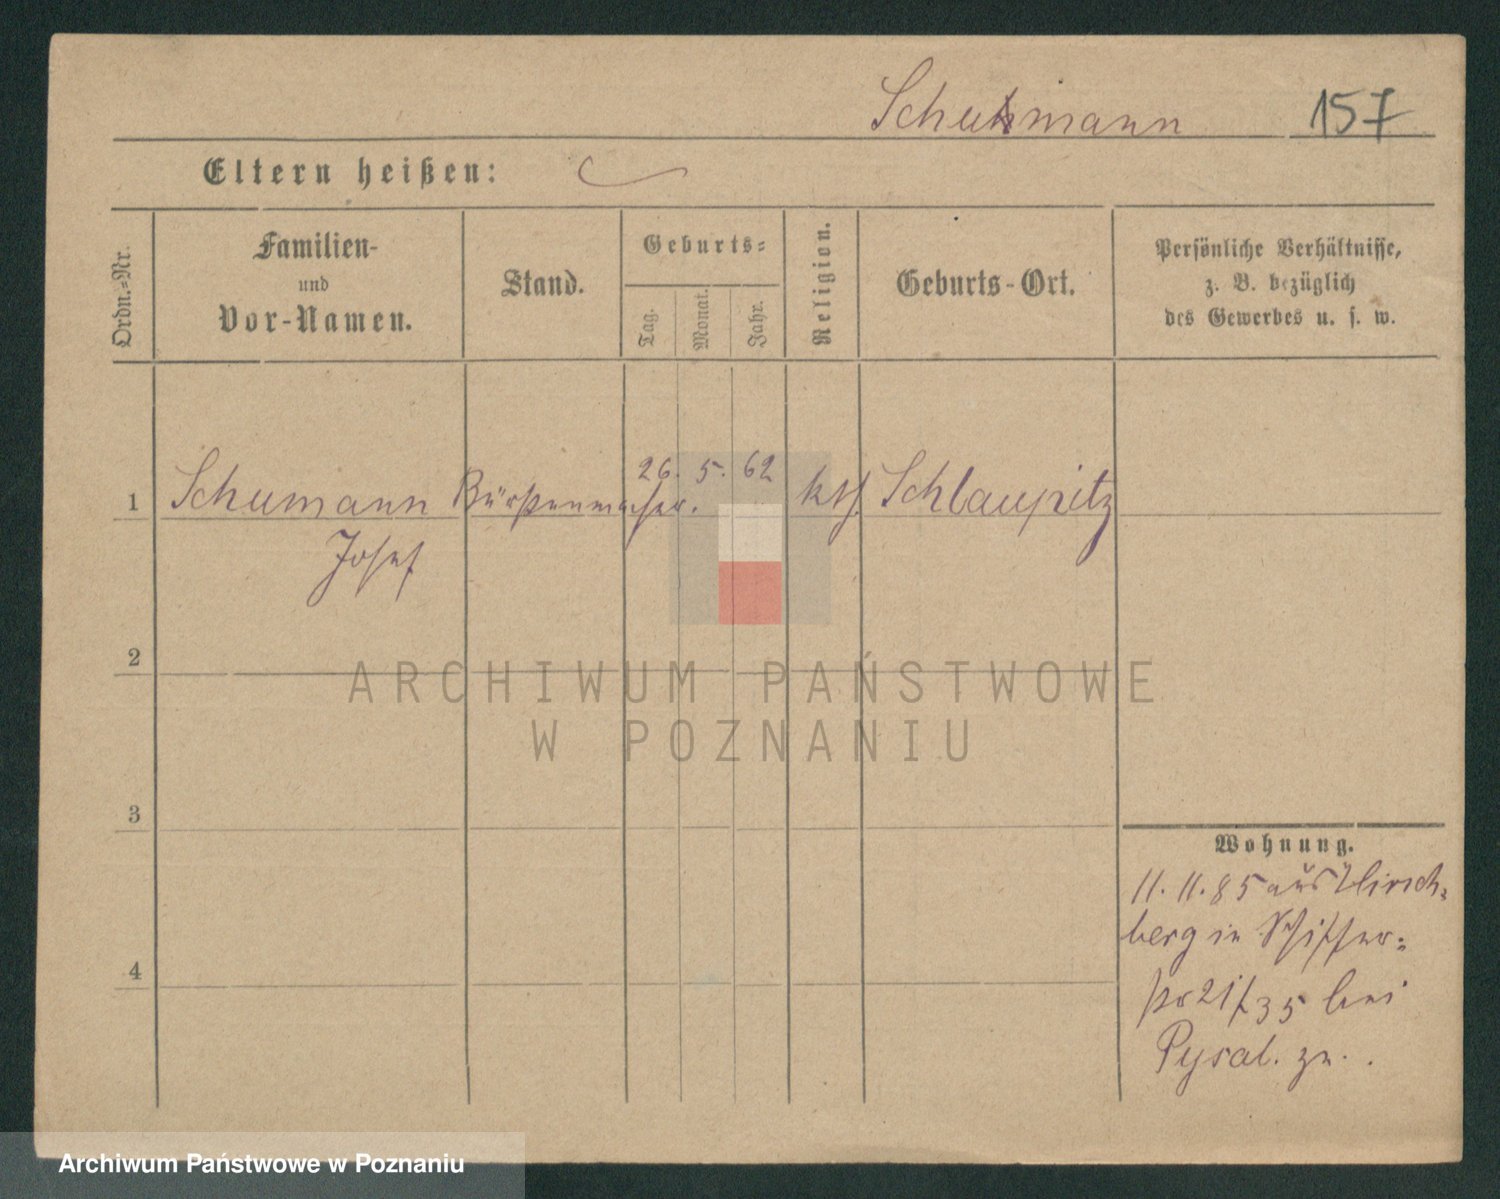 Schuhmann 157
Eltern heißen:
Ordn.-Nr.
Familien-
und
Vor-Namen.
Stand.
Geburts-
Tag.
Monat.
Jahr.
Religion.
Geburts-Ort.
Persönliche Verhältnisse,
z. B. bezüglich
des Gewerbes u. s. w.
1 Schumann Bürstenmacher. 26. 5. 62 kth. Schlaupitz
Josef
2
3
4
ARCHIWUM PAŃSTWOWE
W POZNANIU
Wohnung.
11. 11. 85 aus Hirsch-
berg in Schiffer-
str 21/35 bei
Pysal. zu.
Archiwum Państwowe w Poznaniu